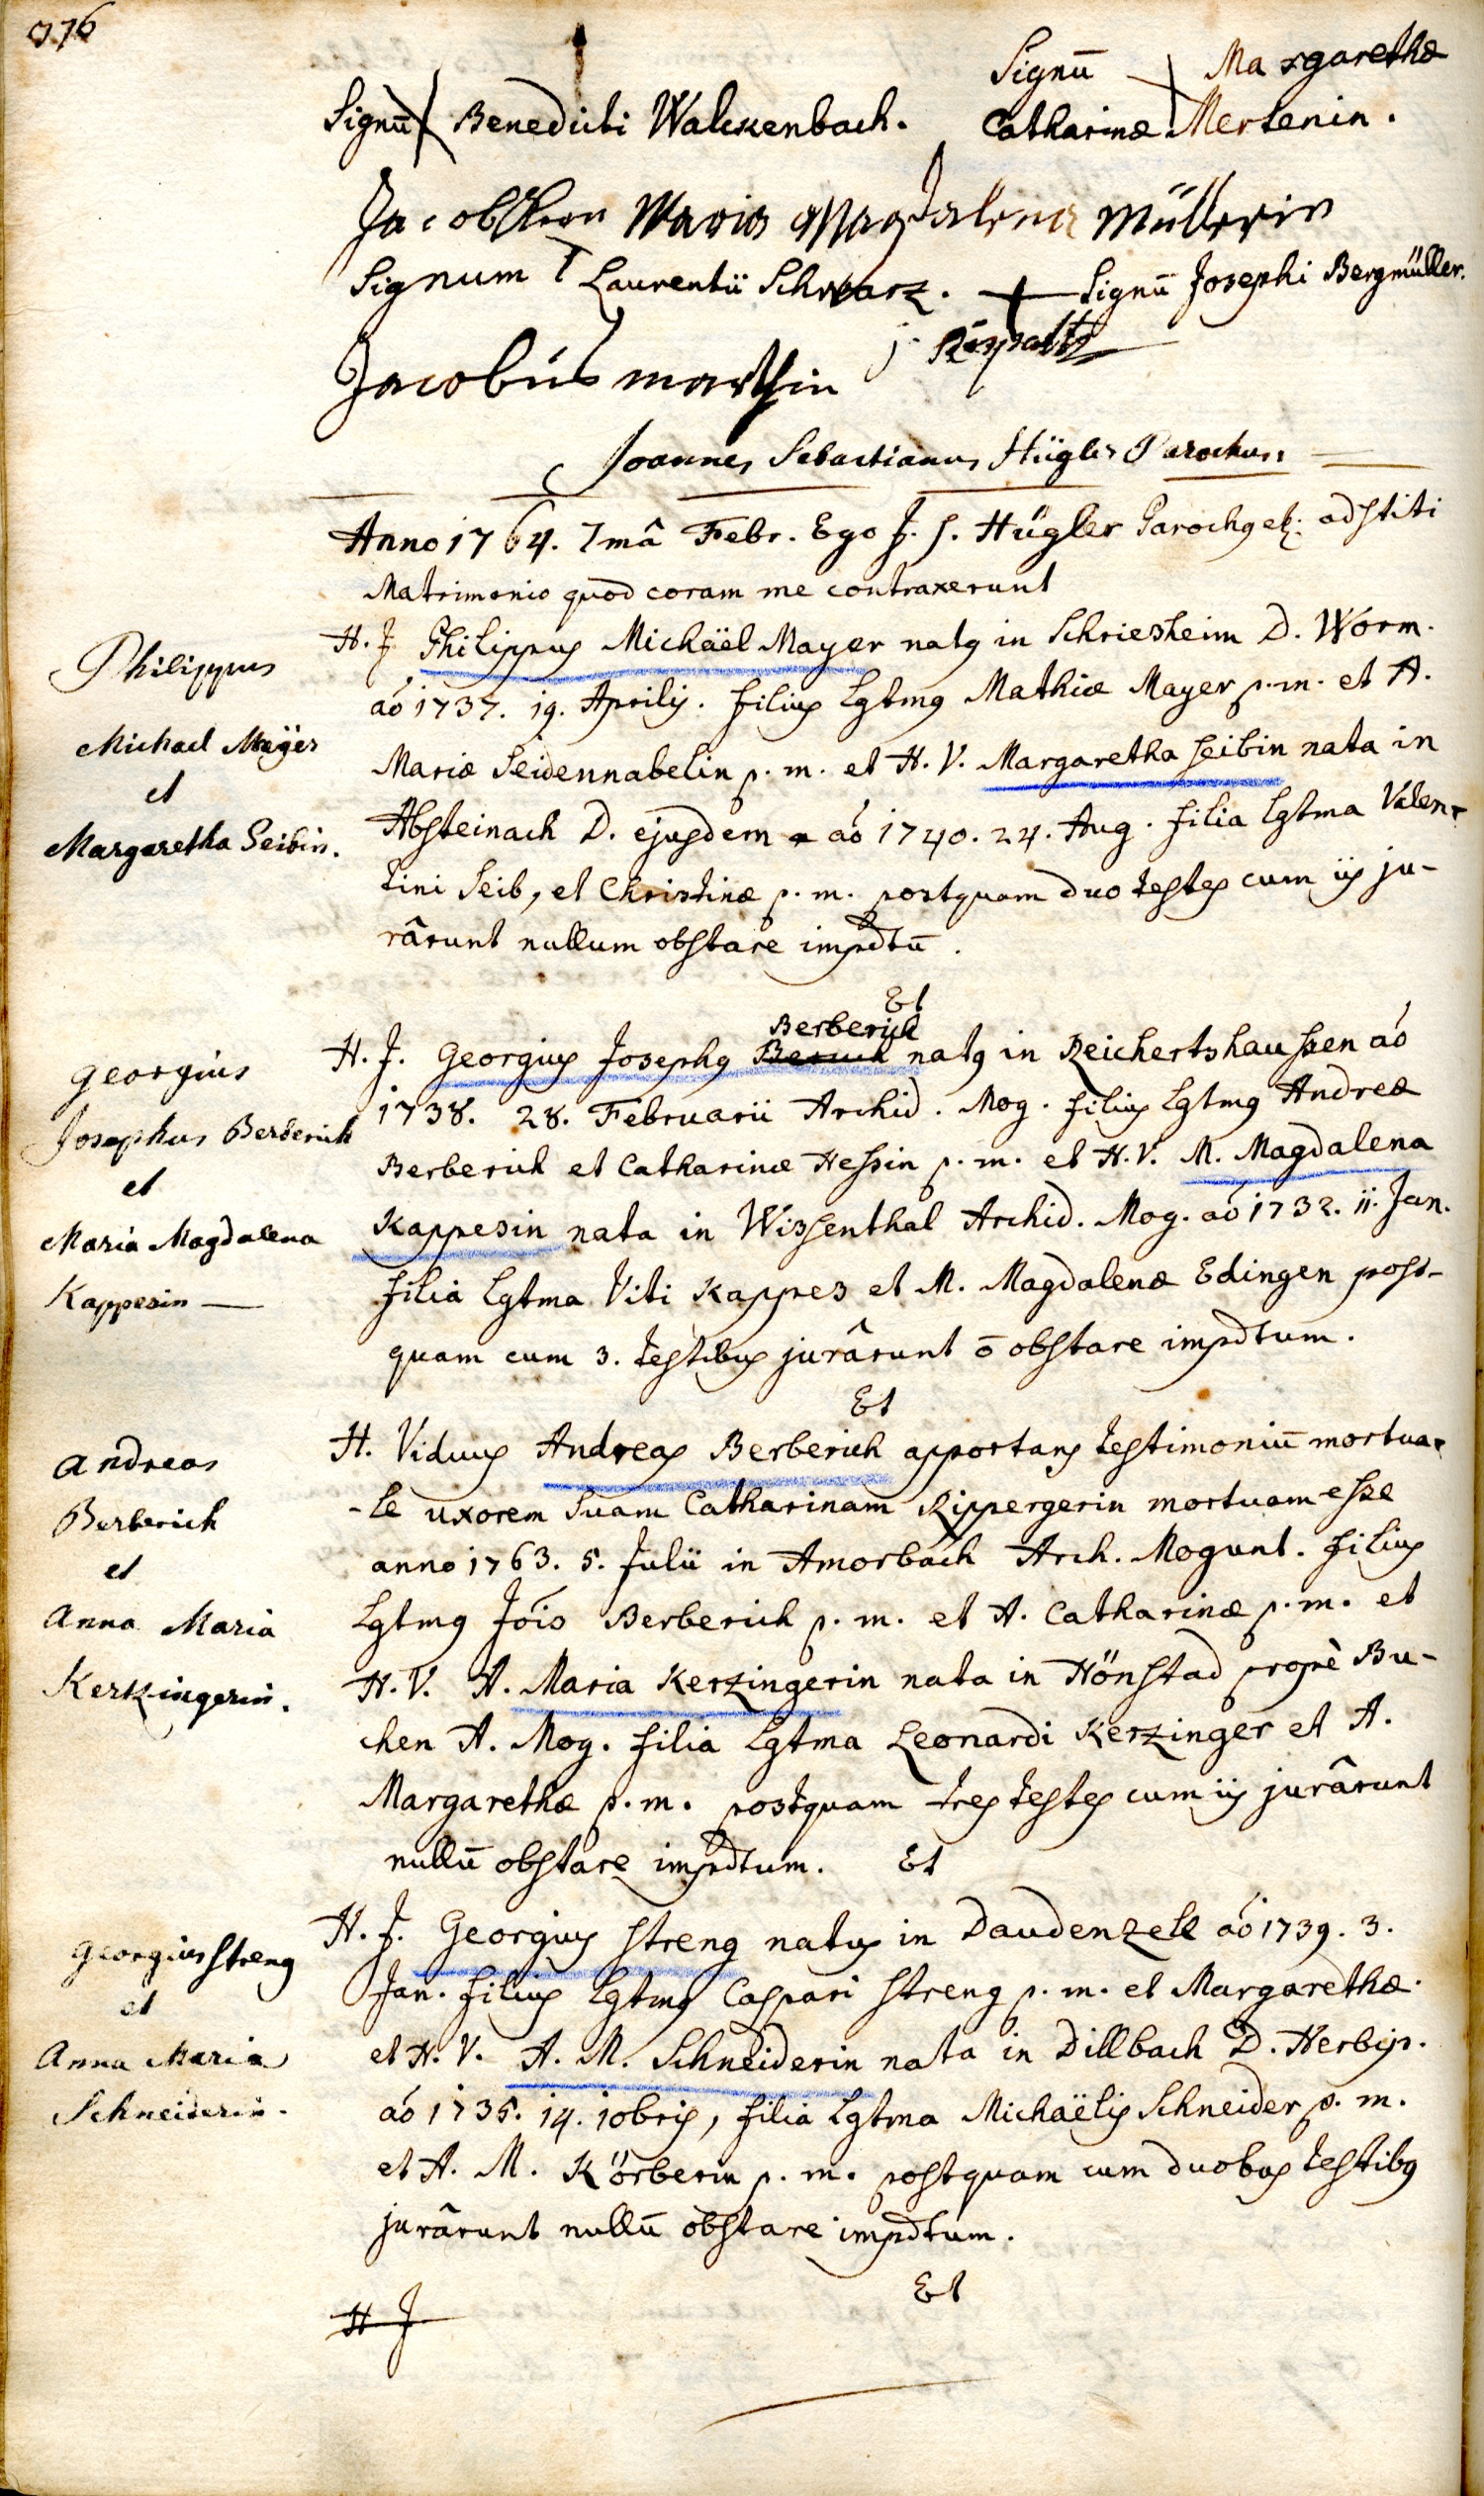 976
Signū Margarethæ
Signū Benedicti Walckenbach. Catharinæ Mertenin.
Jacob Maria Magdalena Müllerin
Signum Laurentii Schwarz. Signū Josephi Bergmüller.
Jacobus marthin
Joannes Sebastianus Hügler Parochus
Anno 1764. 7mâ Febr. Ego J. S. Hügler Parochg adstiti
Matrimonio quod coram me contraxerunt
Philippus
Michael Mayer
et
Margaretha Seibin.
H. J. Philippus Michaël Mayer natg in Schriesheim D. Worm.
aó 1737. 19. Aprilis. filius Lgtmg Mathiæ Mayer p. m. et A.
Mariæ Seidennabelin p. m. et H. V. Margaretha Seibin nata in
Absteinach D. ejusdem aó 1740. 24. Aug. filia Lgtma Valen-
tini Seib, et Christinæ p. m. postquam duo testes cum iis ju-
rârunt nullum obstare impdtū.
Et
Georgius
Josephus Berberich
et
Maria Magdalena
Kappesin
Berberich
H. J. Georgius Josephg natg in Reichertshaussen aó
1738. 28. Februarii Archid. Mog. filius Lgtmg Andreæ
Berberich et Catharinæ Hessin p. m. et H. V. M. Magdalena
Kappesin nata in Wissenthal Archid. Mog. aó 1732. 11. Jan.
filia Lgtma Viti Kappes et M. Magdalenæ Edingen post-
quam cum 3. testibus jurârunt ō obstare impdtum.
Et
Andreas
Berberich
et
Anna Maria
Kerkzingerin.
H. Viduus Andreas Berberich apportans testimoniū mortua-
-le uxorem suam Catharinam Rippergerin mortuam esse
anno 1763. 5. Julii in Amorbach Arch. Mogunt. filius
Lgtmg Jóis Berberich p. m. et A. Catharinæ p. m. et
H. V. A. Maria Kerzingerin nata in Hönstad propè Bu-
chen A. Mog. filia Lgtma Leonardi Kerzinger et A.
Margarethæ p. m. postquam tres testes cum iis jurârunt
nullū obstare impdtum. Et
Georgius Streng
et
Anna Maria
Schneiderin.
H. J. Georgius Streng natus in Daudenzell aó 1739. 3.
Jan. filius Lgtmg Caspari Streng p. m. et Margarethæ
et H. V. A. M. Schneiderin nata in Dillbach D. Herbip.
aó 1735. 14. 10bris, filia Lgtma Michaëlis Schneider p. m.
et A. M. Körberin p. m. postquam cum duobus testibg
jurârunt nullū obstare impdtum.
Et
H J